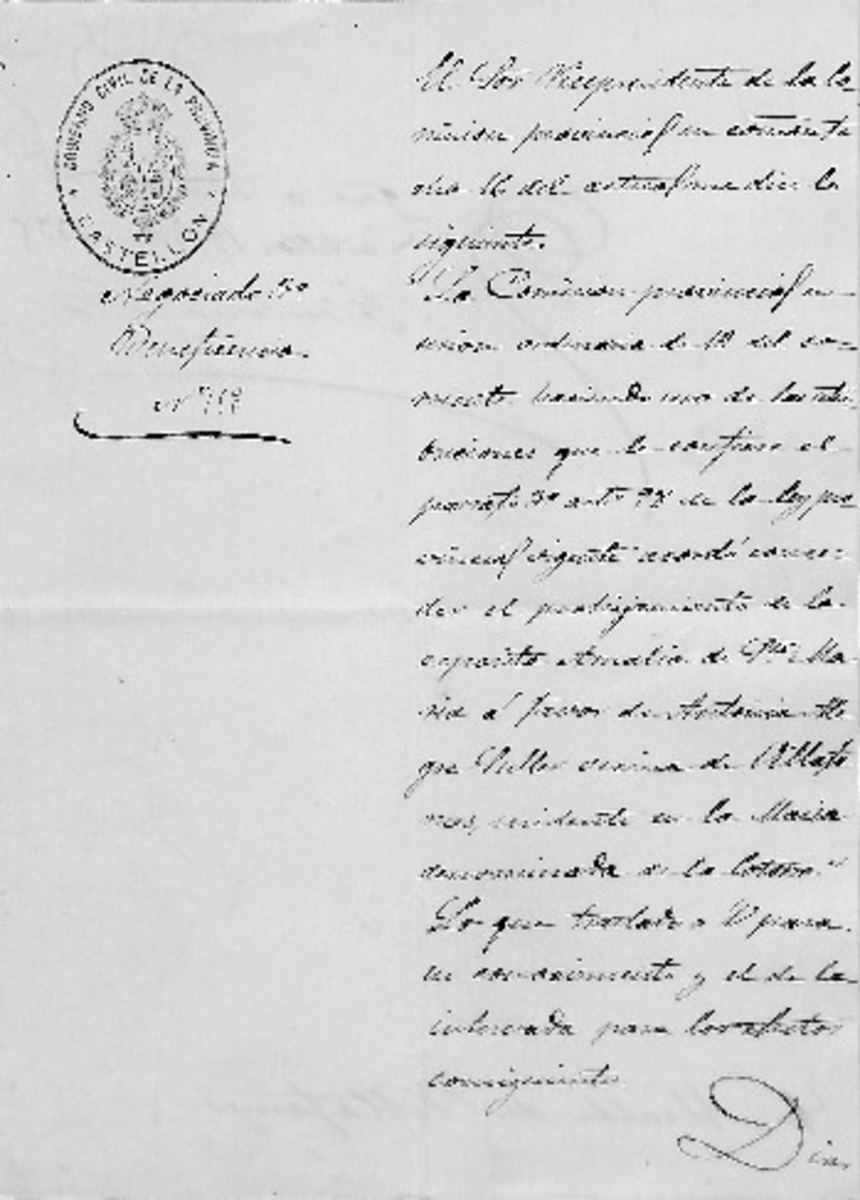 GOBIERNO CIVIL DE LA PROVINCIA
CASTELLON
Negociado 3º
Beneficencia
Nº
El Sor Vicepresidente de la Co-
mision provincial en comunica
del actual me dice lo
siguiente.
"La Comision provincial en
sesion ordinaria de 10 del cor-
riente haciendo uso de las atri
buciones que le confiere el
parrafo 3º artº 98 de la ley pro
vincial vigente acordó conce-
der el prohijamiento de la
expósito Amalia de Sta Ma-
ria á favor de Antonia
vecina de Villafa
mes, residente en la Masia
denominada de la
Lo que traslado a V para
su conocimiento y el de la
interesada para los efectos
consiguientes
Dios